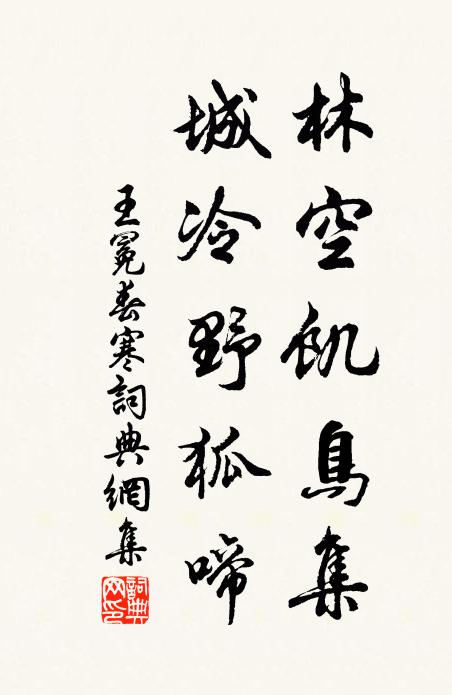 林空飢鳥集
城冷野狐啼
王冕春寒詞典網集
詞典网印